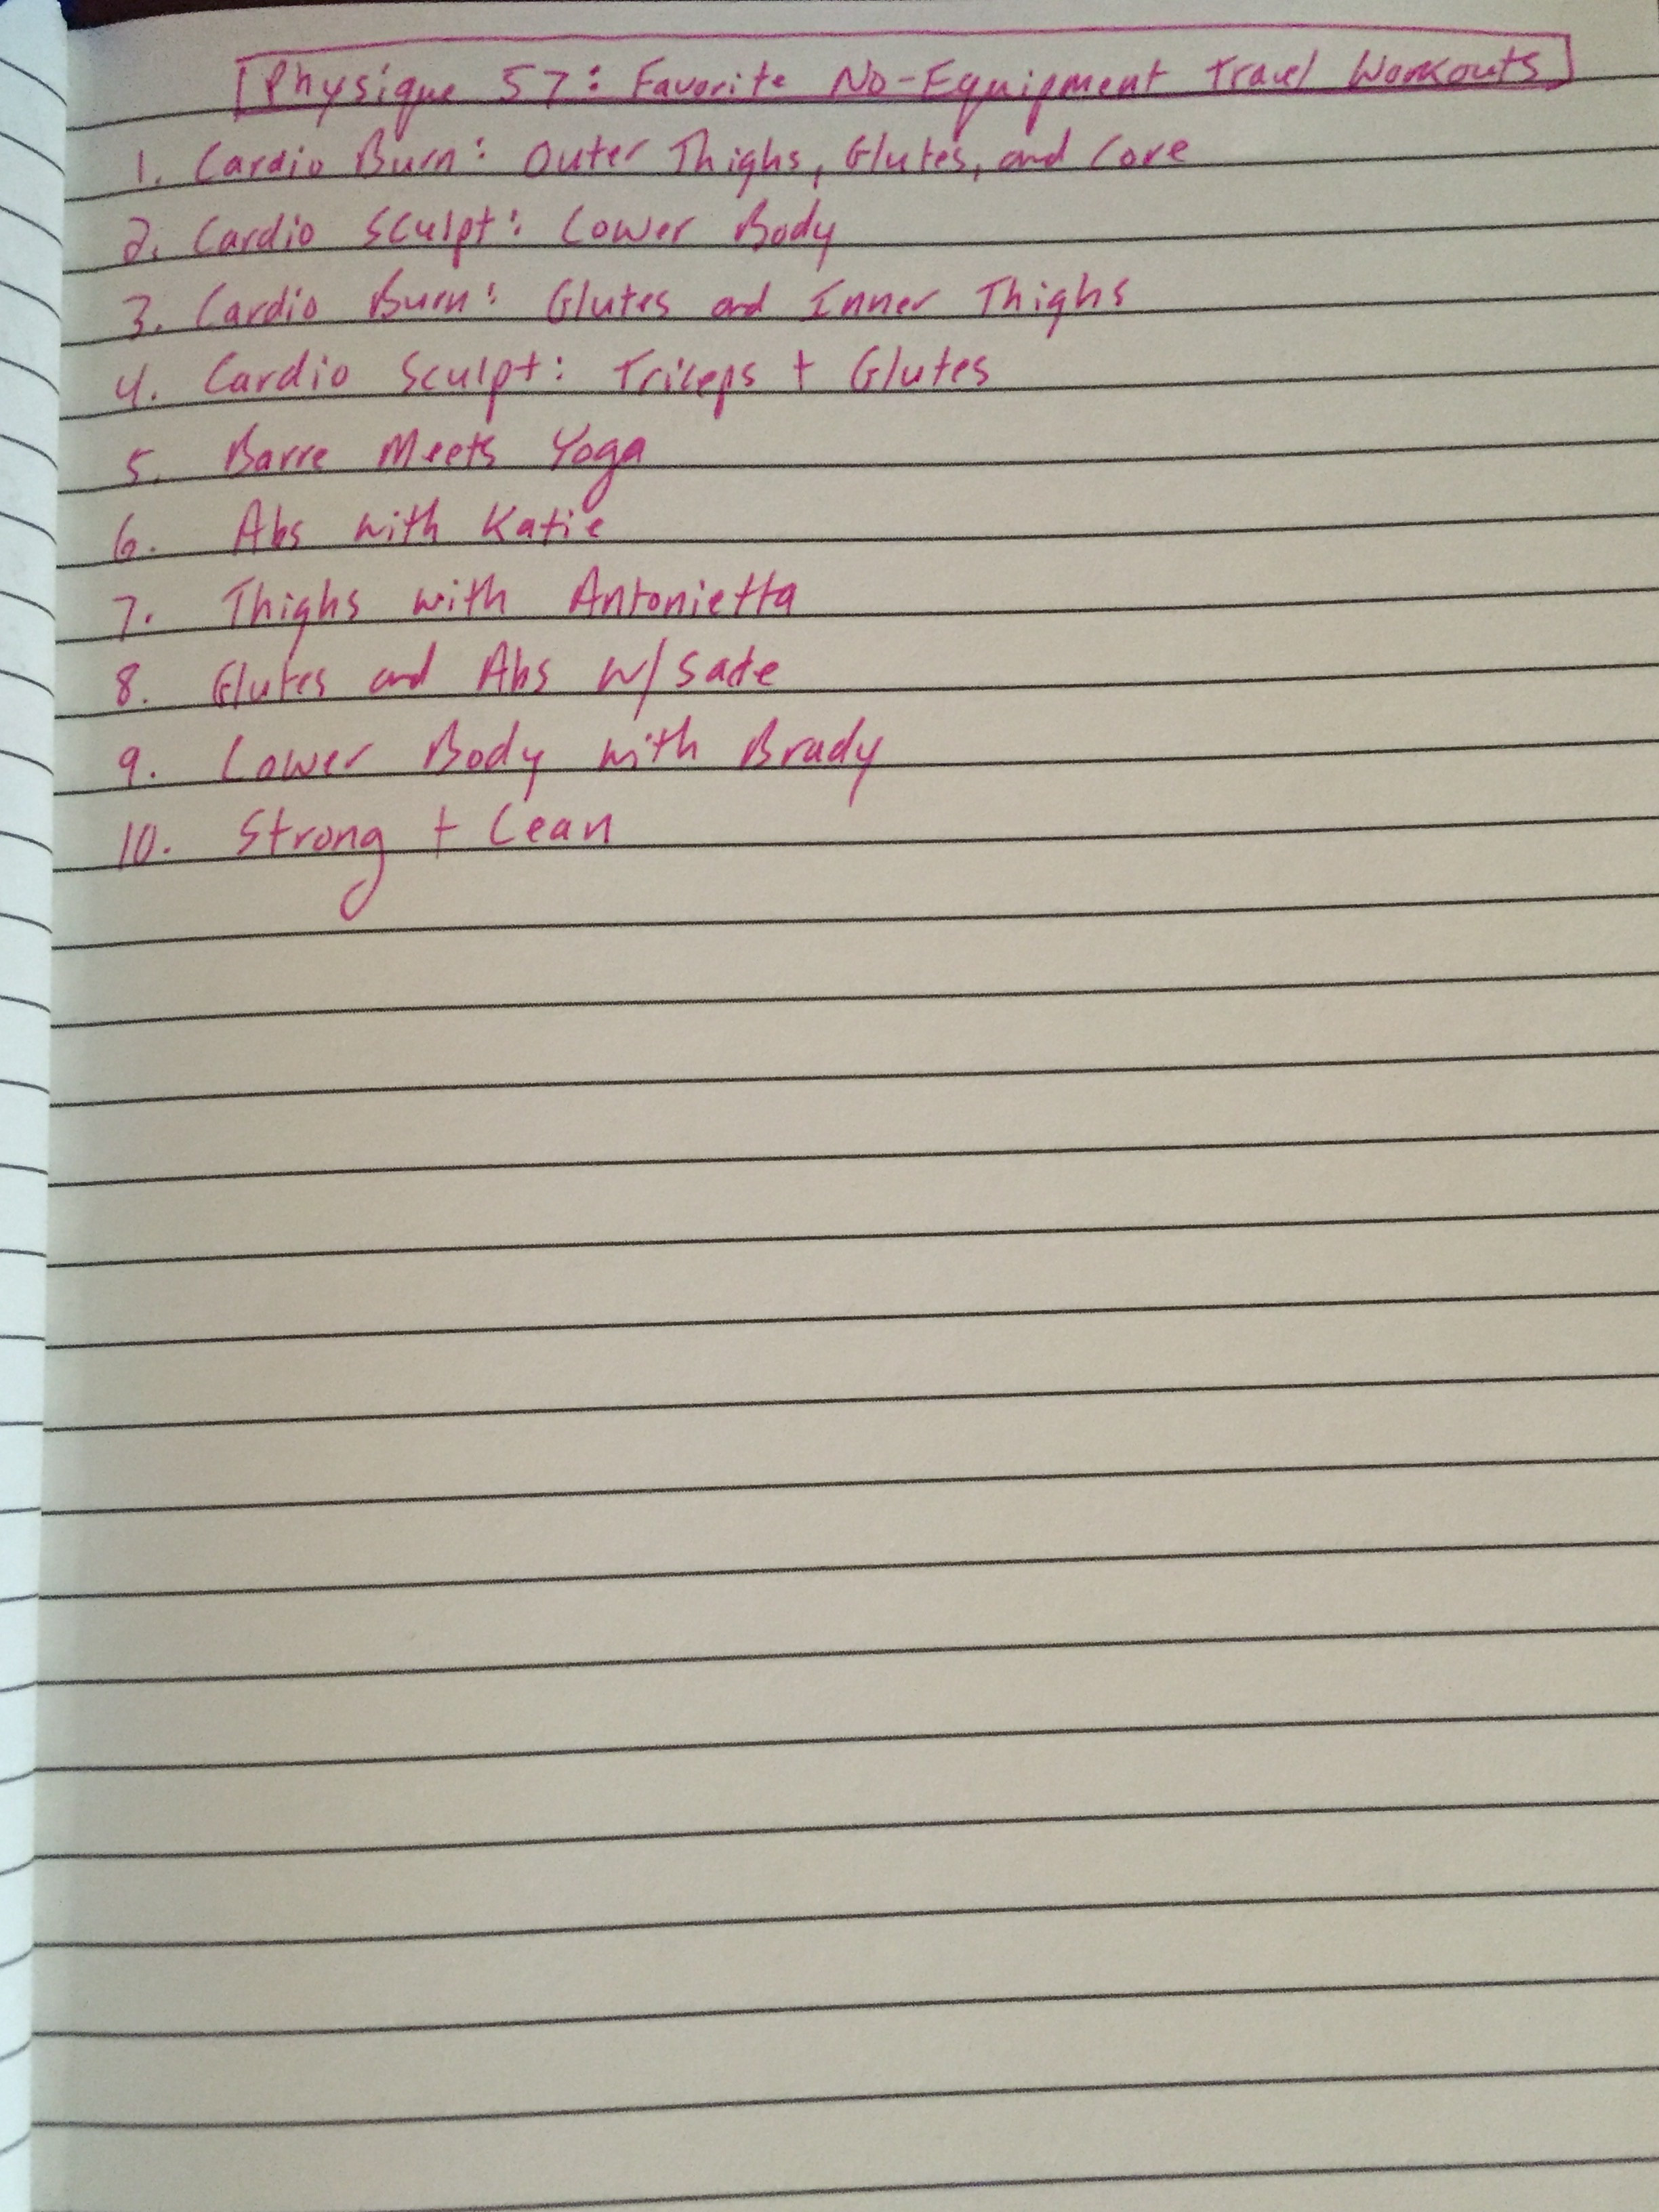 Physique 57: Favorite No-Equipment Travel Workouts
1. Cardio Burn: Outer Thighs, Glutes, and Core
2. Cardio Sculpt: Lower Body
3. Cardio Burn: Glutes and Inner Thighs
4. Cardio Sculpt: Triceps + Glutes
5. Barre Meets Yoga
6. Abs with Katie
7. Thighs with Antonietta
8. Glutes and Abs w/ Sade
9. Lower Body with Brady
10. Strong + Lean